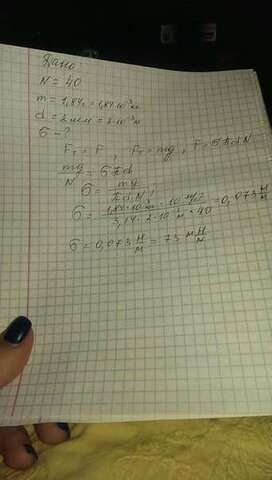 Дано
N = 40
m = 1,84г = 1,84·10⁻³кг
d = 2мм = 2·10⁻³м
σ - ?
Fт = F , Fт = mg , F = σπdN
mg/N = σπd
σ = mg/πdN ;
σ = 1,84·10⁻³·10 м/с²/3,14·2·10⁻³м·40 = 0,073 Н/м
σ = 0,073 Н/м = 73 мН/м